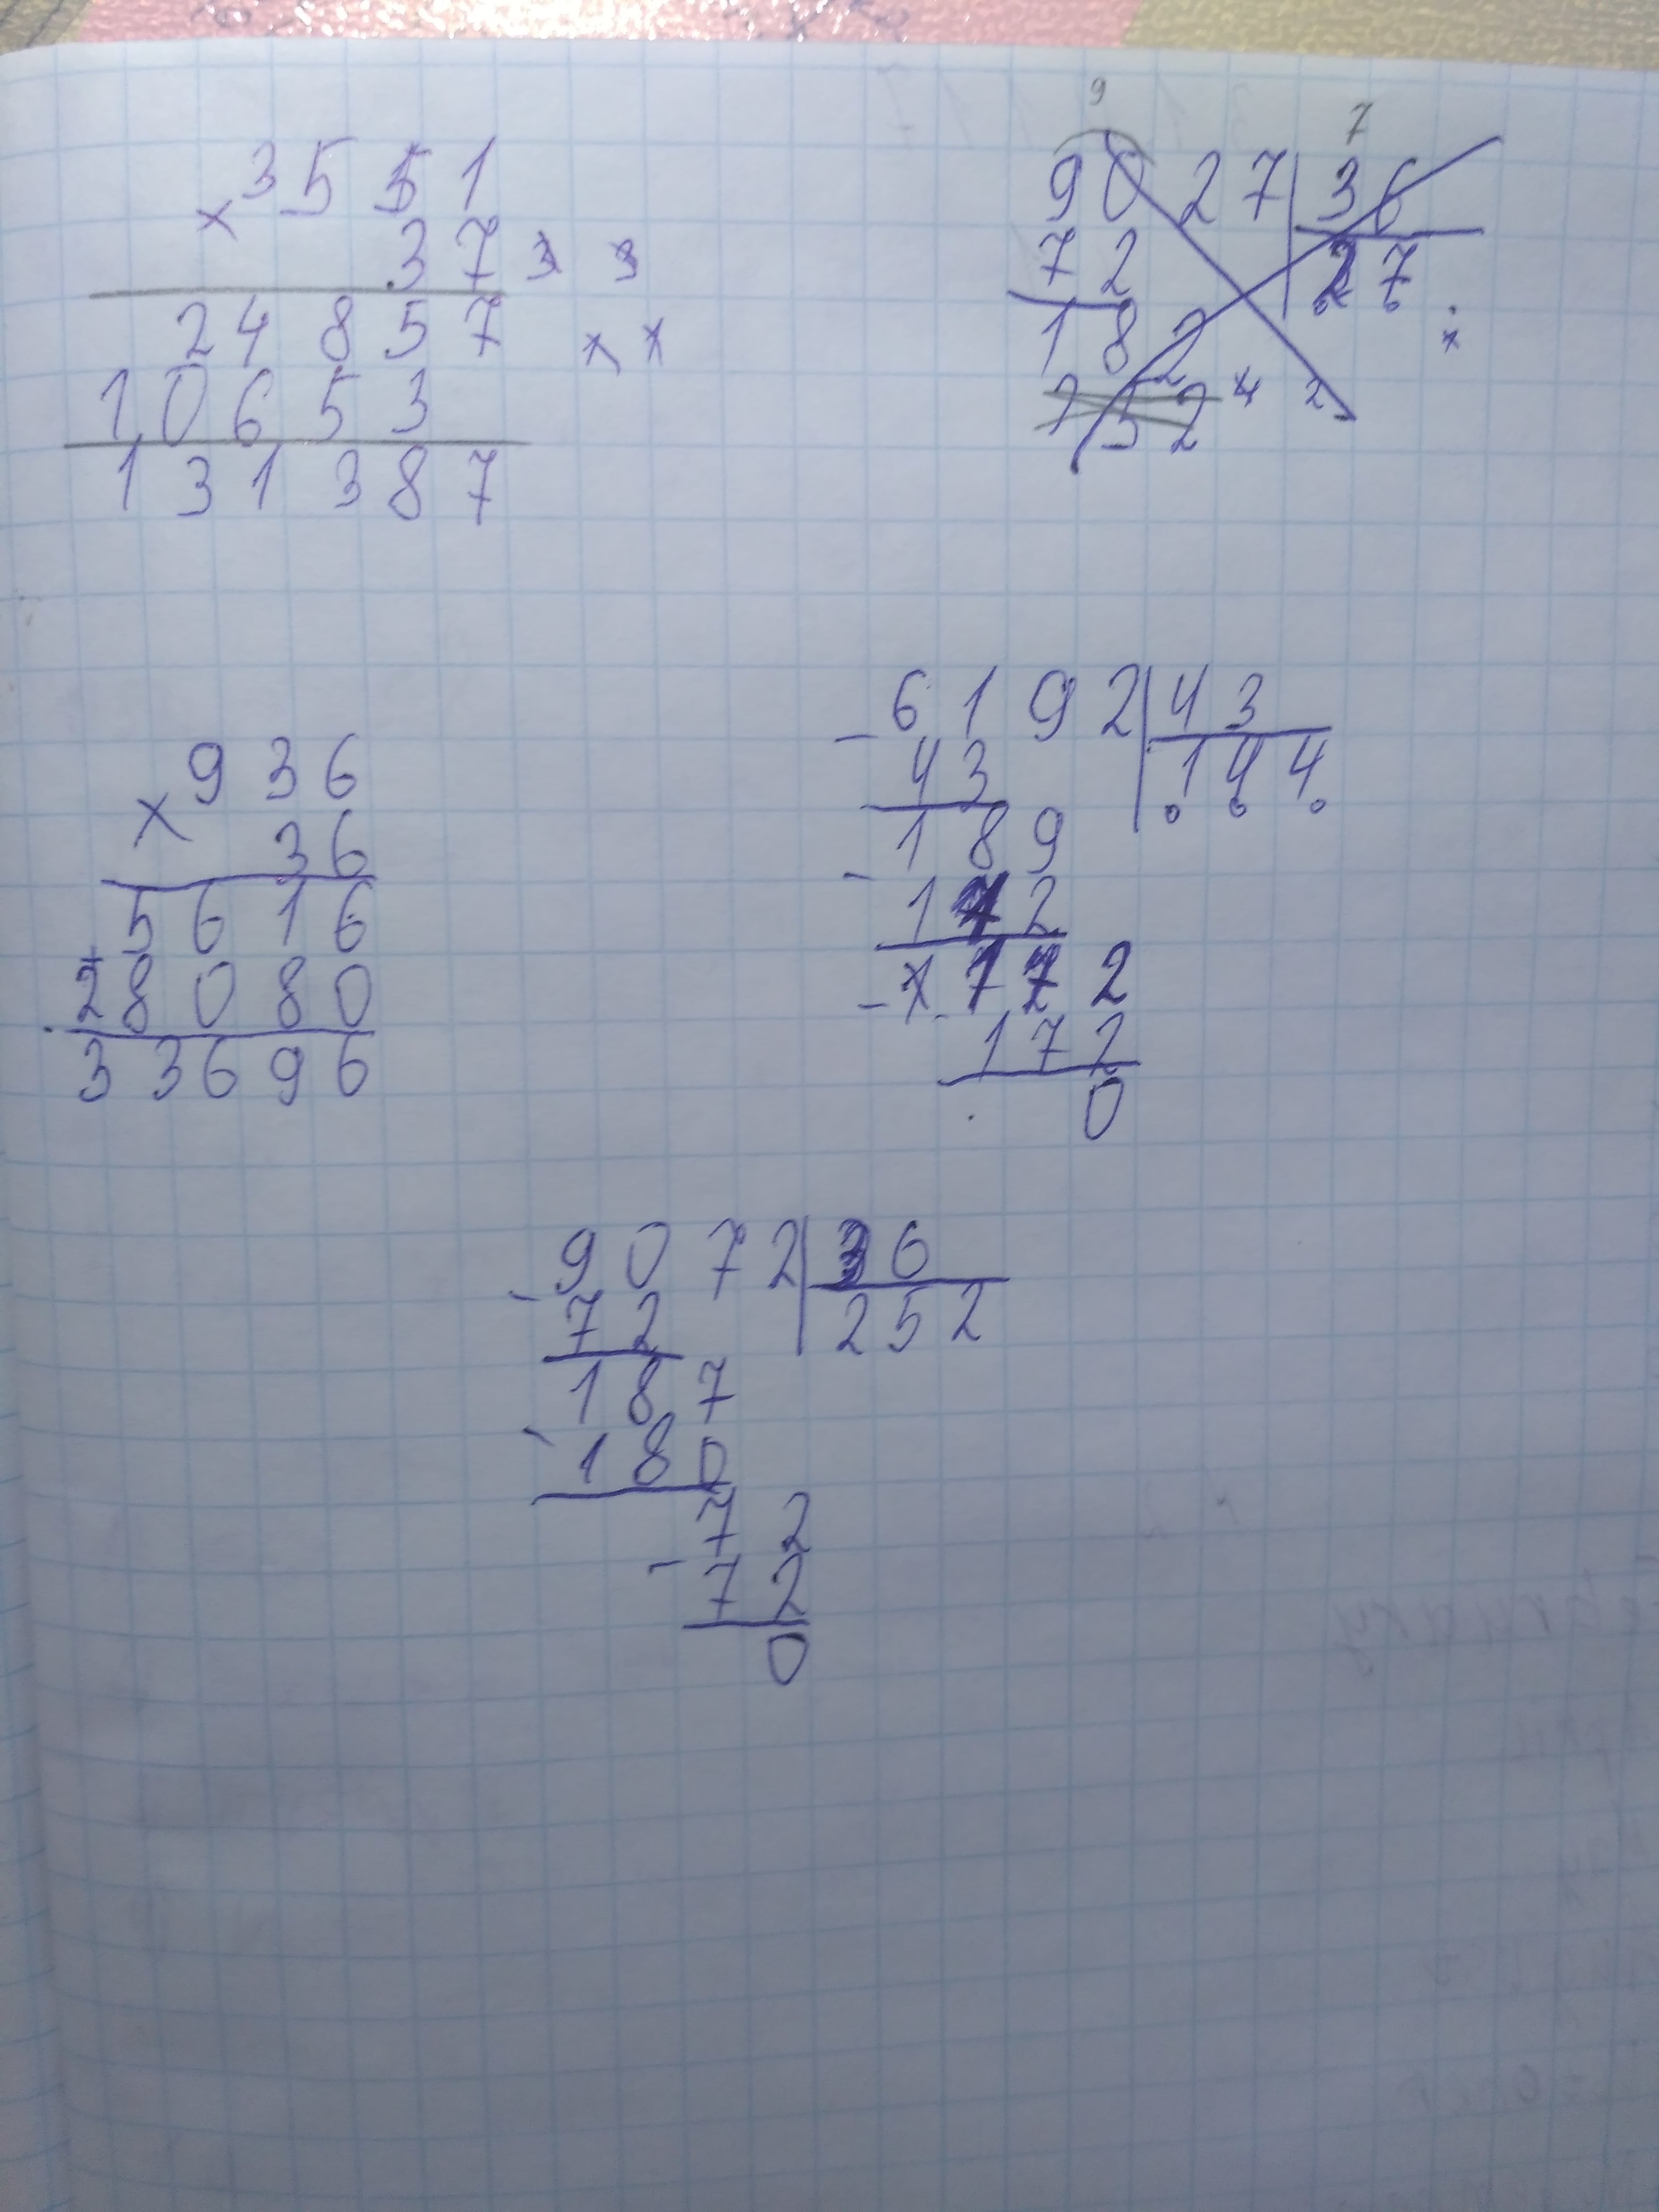 × 3551
37
24857
10653
131387
9
7
9027 | 36
72
27
182
252
2
× 936
36
5616
+ 28080
33696
- 6192 | 43
43
144
- 189
172
- 172
172
0
- 9072 | 36
72
252
187
- 180
72
- 72
0